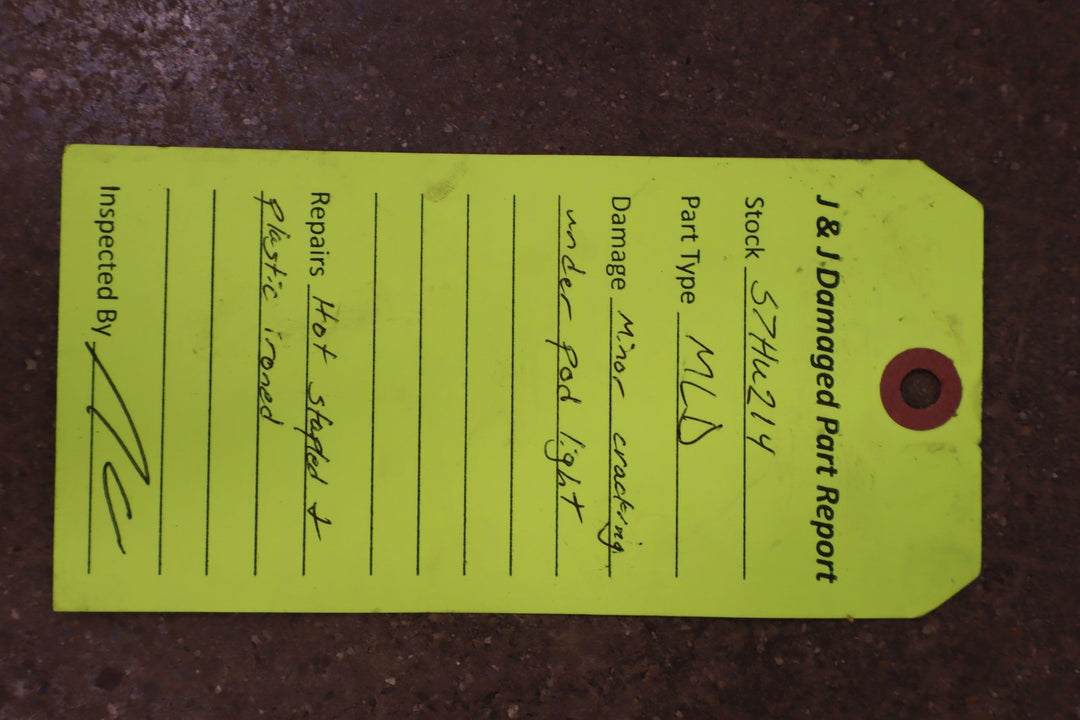 J & J Damaged Part Report
Stock S7Hu214
Part Type MLD
Damage Minor cracking
under pod light
Repairs Hot stapled &
plastic ironed
Inspected By